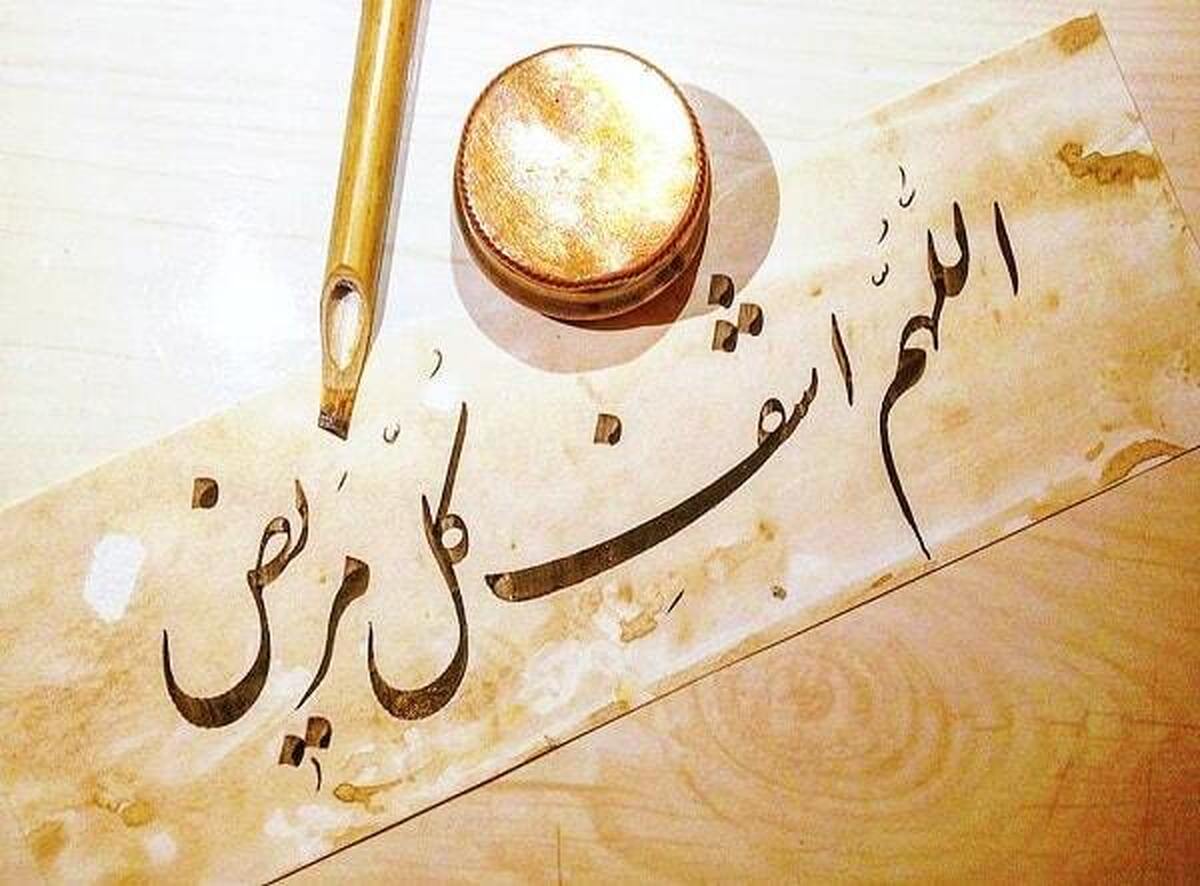 اللّهم اشفِ كلَّ مَريض